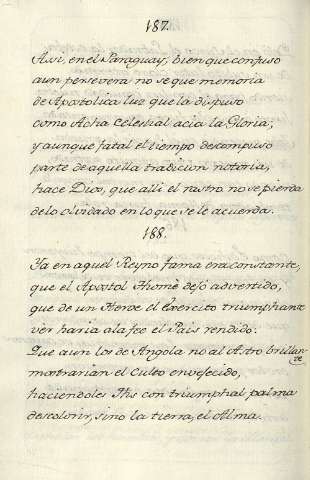 187.
Assi, en el Paraguay, bien que confuso
aun persevera no se que memoria
de Apostolica luz que la dispuso
como Acha Celestial acia la Gloria;
y aunque fatal el tiempo descompuso
parte de aquella tradicion notoria,
hace Dios, que alli el rastro no se pierda
de lo olvidado en lo que se le acuerda.
188.
Ya en aquel Reyno fama era constante,
que el Apostol Thomè dejó advertido,
que de un Heroe el Exercito triumphante
ver haria a la fee el Pais rendido.
Que aun los de Angola no al Astro brillan-
te
mostrarian el Culto envejecido,
haciendoles Jhs con triumphal palma
descolorir, sino la tierra, el Alma.